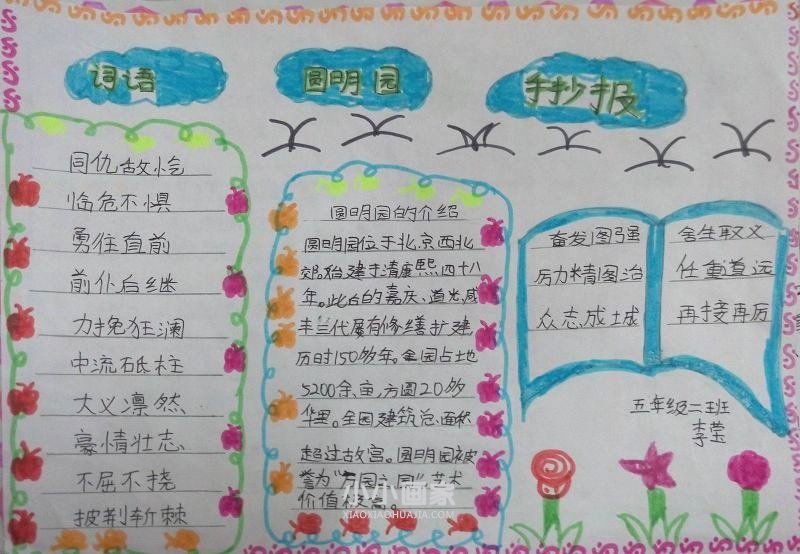 词语
圆明园
手抄报
同仇敌忾
临危不惧
勇往直前
前仆后继
力挽狂澜
中流砥柱
大义凛然
豪情壮志
不屈不挠
披荆斩棘
圆明园的介绍
圆明园位于北京西北
郊,始建于清康熙四十八
年。此后的嘉庆、道光、咸
丰三代屡有修缮扩建
历时150多年。全园占地
5200余亩,方圆20多
华里。全园建筑总面积
超过故宫。圆明园被
誉为“万园之园”,艺术
价值极高。
奋发图强
厉精图治
众志成城
舍生取义
任重道远
再接再厉
五年级二班
李莹
小小画家
XIAOXIAOHUAJIA.COM